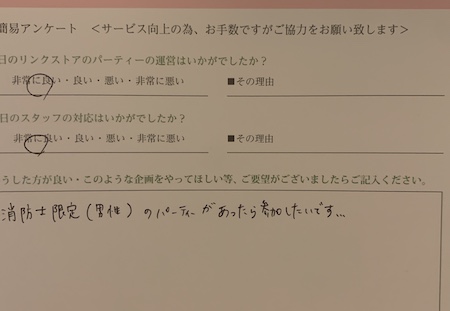 簡易アンケート ＜サービス向上の為、お手数ですがご協力をお願い致します＞
日のリンクストアのパーティーの運営はいかがでしたか？
非常に良い・良い・悪い・非常に悪い ■その理由
日のスタッフの対応はいかがでしたか？
非常に良い・良い・悪い・非常に悪い ■その理由
うした方が良い・このような企画をやってほしい等、ご要望がございましたらご記入ください。
消防士限定(男性)のパーティーがあったら参加したいです…